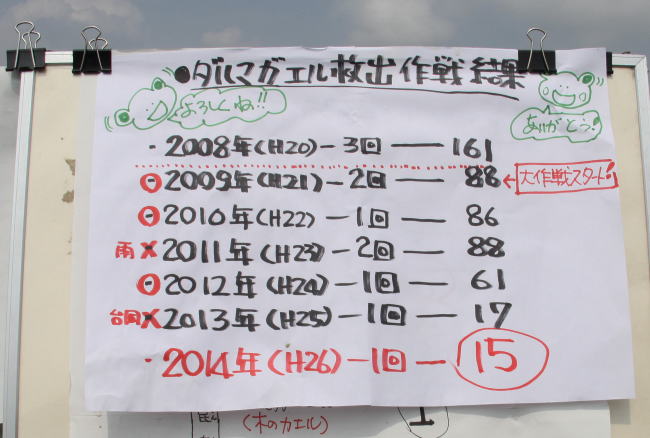 ●ダルマガエル救出作戦結果
よろしくね!!
ありがとう!
・2008年(H20)ー3回ー161
○2009年(H21)ー2回ー88←大作戦スタート!
○2010年(H22)ー1回ー86
雨×2011年(H23)ー2回ー88
○2012年(H24)ー1回ー61
台風×2013年(H25)ー1回ー17
・2014年(H26)ー1回ー15
(木のカエル)
1